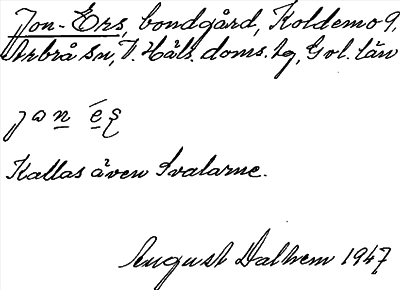 Jon-Ers, bondgård, Koldemo 9,
Arbrå sn, V. Häls. doms. tg, Gvl. län
jωn ég
Kallas även Svalarne.
August Dalhem 1947